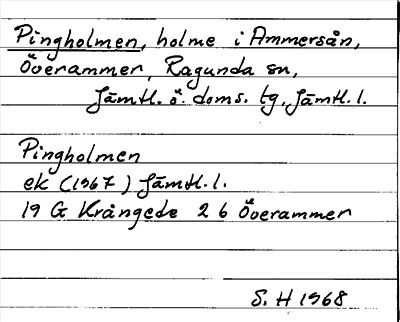 Pingholmen, holme i Ammersån,
Överammer, Ragunda sn,
Jämtl. ö. doms. tg, Jämtl. l.
Pingholmen
ek (1967) Jämtl. l.
19 G Krångede 2 6 Överammer
S. H 1968